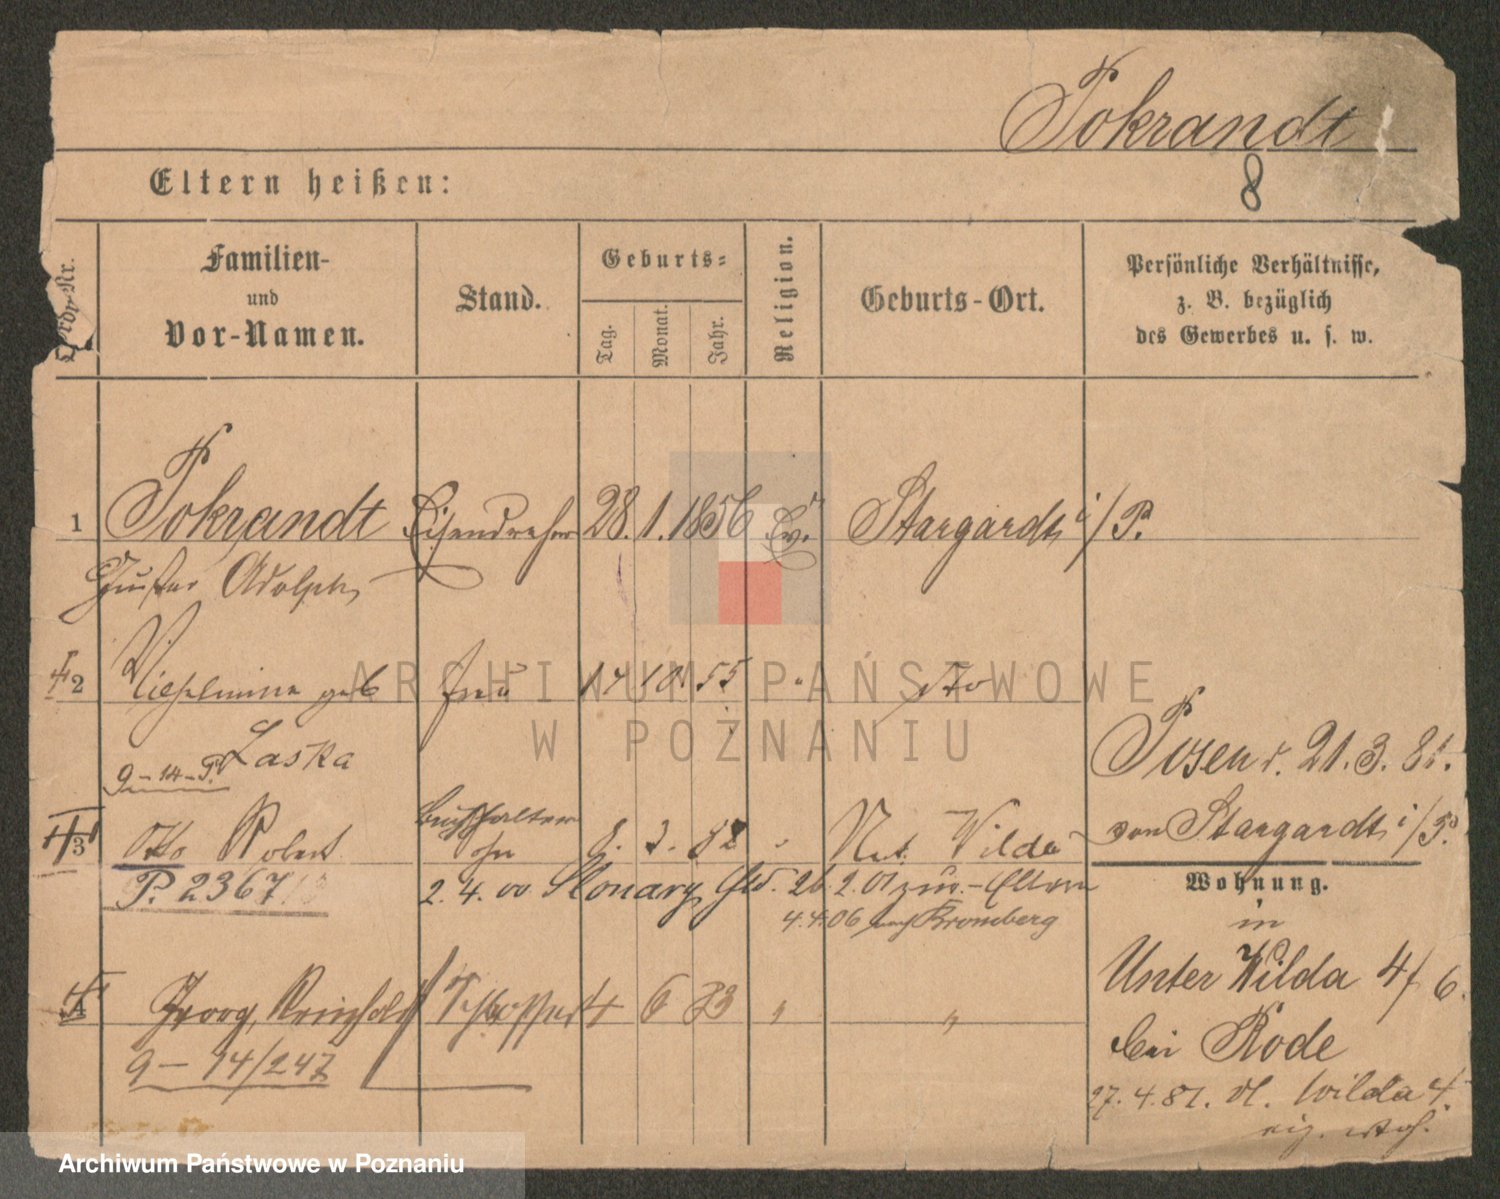 Pokrandt
8
Eltern heißen:
Ordn. Nr.
Familien-
und
Vor-Namen.
Stand.
Geburts=
Tag.
Monat.
Jahr.
Religion.
Geburts-Ort.
Persönliche Verhältnisse,
z. B. bezüglich
des Gewerbes u. s. w.
1 Pokrandt Eisendreher 28. 1. 1856 Ev. Stargardt i/P.
Gustav Adolph
2 Wilhelmine geb Frau 14 10. 55 " dto
Laska
9-14-
Posen d. 21. 3. 81.
von Stargardt i/P.
3 Otto Robert Buchhalter 8. 2. 82 " Unt. Wilda
P. 2367 2. 4. 00 26. 2. 01 zu Eltern
4.4.06 nach Bromberg
Wohnung.
in
Unter Wilda 4/6.
bei Rode
4 Georg, Reinhold Schlosser 4 6 83 " "
9-14/247
27. 4. 81. U. Wilda 4.
ARCHIWUM PAŃSTWOWE
W POZNANIU
Archiwum Państwowe w Poznaniu